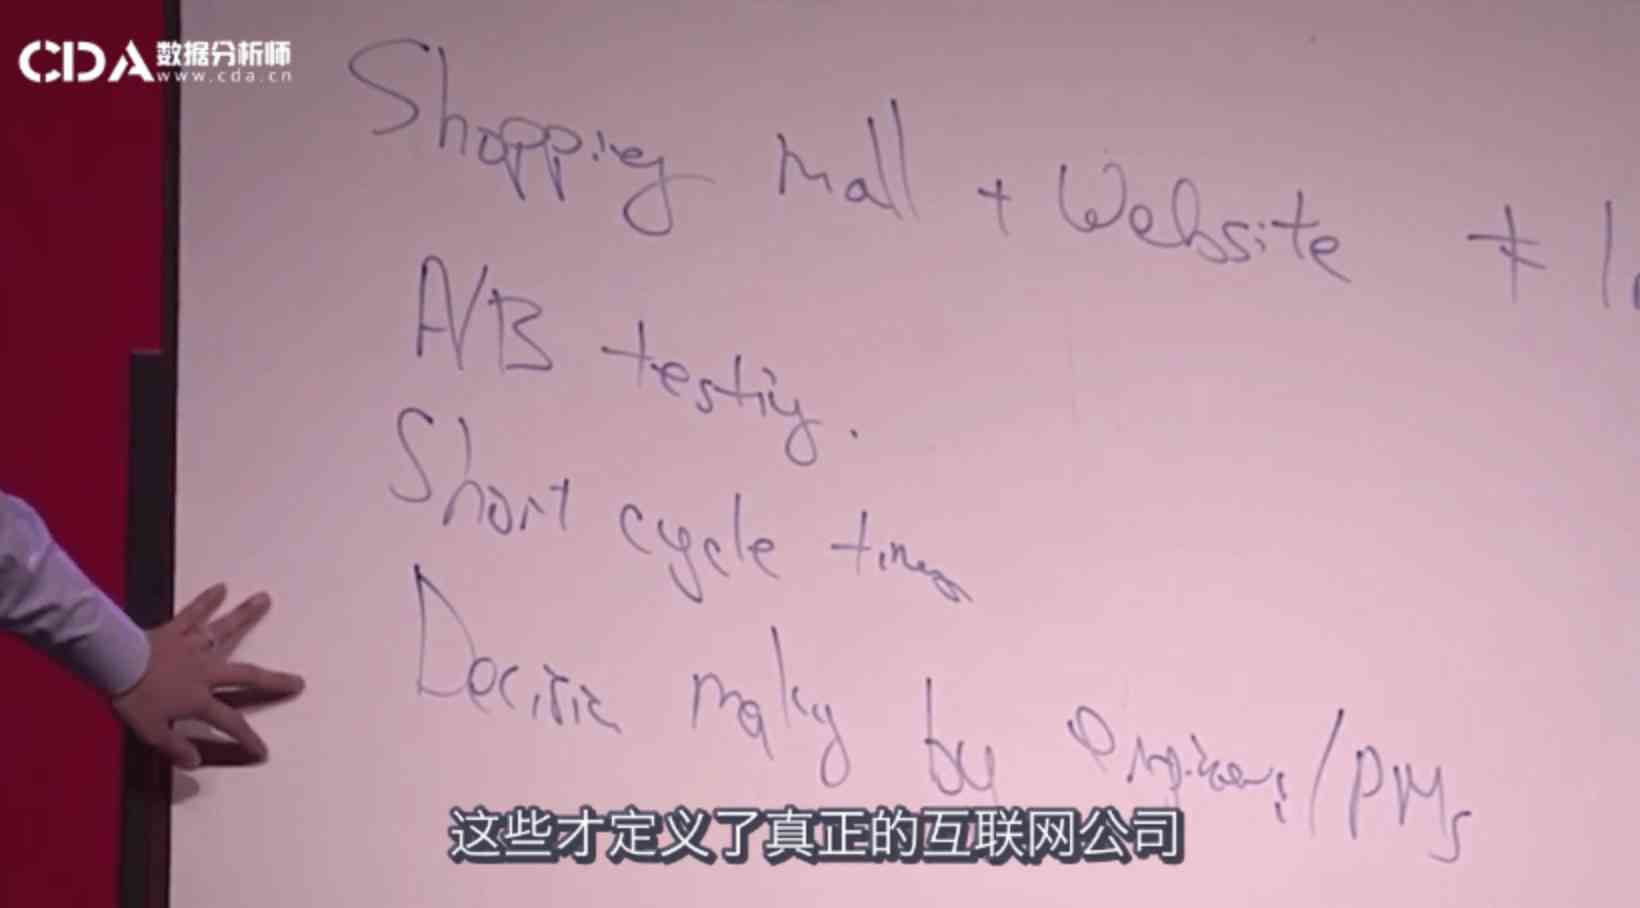 CDA 数据分析师
www.cda.cn
Shopping mall + Website ≠ In
A/B testing.
Short cycle times
Decision making by engineers/PMs
这些才定义了真正的互联网公司